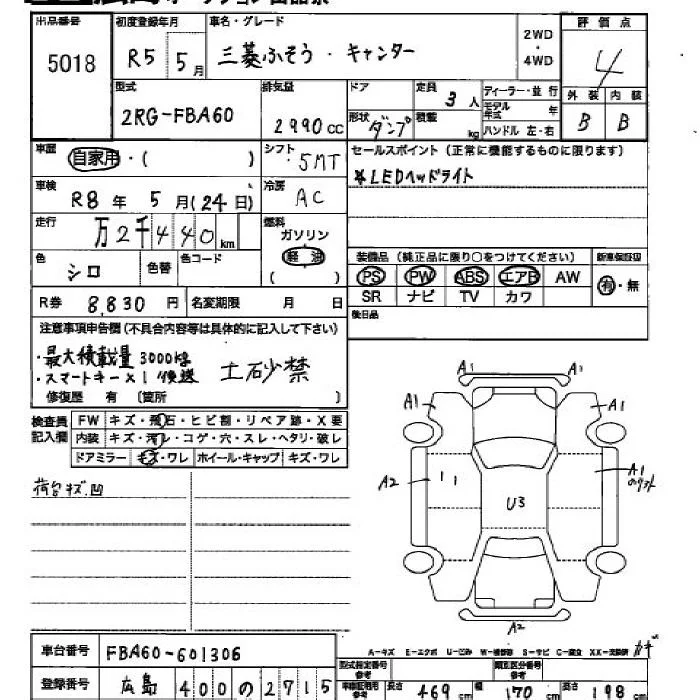 出品番号 初度登録年月 車名・グレード 評価点
5018 R5 5月 三菱ふそう・キャンター 2WD・4WD 4
型式 排気量 ドア 定員 ディーラー・並行 外装 内装
2RG-FBA60 2990cc 3人 モデル年式 年 B B
形状 ダンプ 積載 kg ハンドル 左・右
車歴 自家用・( ) シフト 5MT セールスポイント (正常に機能するものに限ります)
*LEDヘッドライト
車検 R8年 5月(24日) 冷房 AC
走行 万2千440km 燃料 ガソリン
軽油
( )
色 シロ 色替 色コード
装備品 (純正品に限り○をつけてください) 新車保証書
PS PW ABS エアB AW 有・無
SR ナビ TV カワ
R券 8,830円 名変期限 月 日 後日品
注意事項申告欄(不具合内容等は具体的に記入して下さい)
・最大積載量 3000kg
・スマートキー×1後送 土砂禁
修復歴 有 〔箇所 〕
検査員記入欄 FW キズ・飛石・ヒビ割・リペア跡・X要
内装 キズ・汚レ・コゲ・穴・スレ・ヘタリ・破レ
ドアミラー キズ・ワレ ホイール・キャップ キズ・ワレ
荷台キズ.凹
A1 A1
A1 A1
A2 U3 A1
A2
A-キズ E-エクボ U-凹み W-補修跡 S-サビ C-腐食 XX-交換済
車台番号 FBA60-601306
登録番号 広島 400の2715
型式指定番号 参考 類別区分番号 参考
長さ 469cm 幅 170cm 高さ 198cm